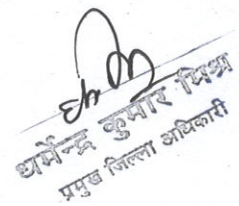 धर्मेन्द्र कुमार मिश्र
प्रमुख जिल्ला अधिकारी